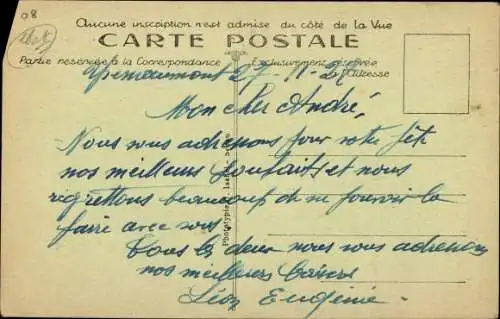 08
Aucune inscription n'est admise du côté de la Vue
CARTE POSTALE
Partie réservée à la Correspondance
Exclusivement réservée à l'Adresse
27-11-
Mon cher André,
Nous vous adressons pour votre fête
nos meilleurs souhaits et nous
regrettons beaucoup de ne pouvoir la
faire avec vous
Tous les deux nous vous adressons
nos meilleurs baisers
Léon Eugénie.
Phototypie